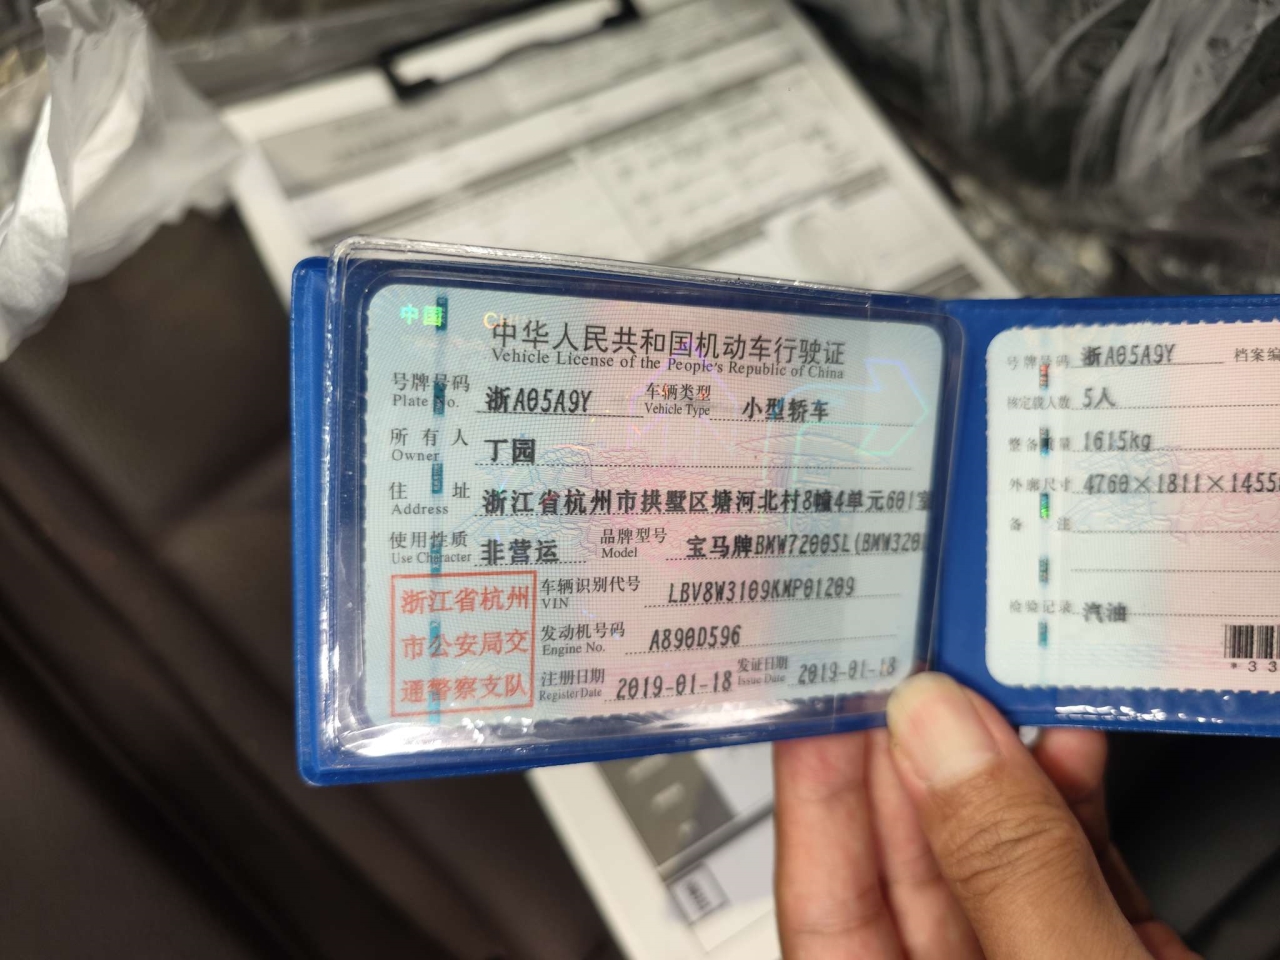 中国 CHINA
中华人民共和国机动车行驶证
Vehicle License of the People's Republic of China
号牌号码 浙A05A9Y 车辆类型 小型轿车
Plate No. Vehicle Type
所有人 丁园
Owner
住址 浙江省杭州市拱墅区塘河北村8幢4单元601室
Address
使用性质 非营运 品牌型号 宝马牌BMW7200SL(BMW320
Use Character Model
浙江省杭州
市公安局交
通警察支队
车辆识别代号 LBV8W3109KMP01209
VIN
发动机号码 A890D596
Engine No.
注册日期 2019-01-18 发证日期 2019-01-18
Register Date Issue Date
号牌号码 浙A05A9Y 档案编
核定载人数 5人
整备质量 1615kg
外廓尺寸 4760×1811×1455
备注
检验记录 汽油
*33